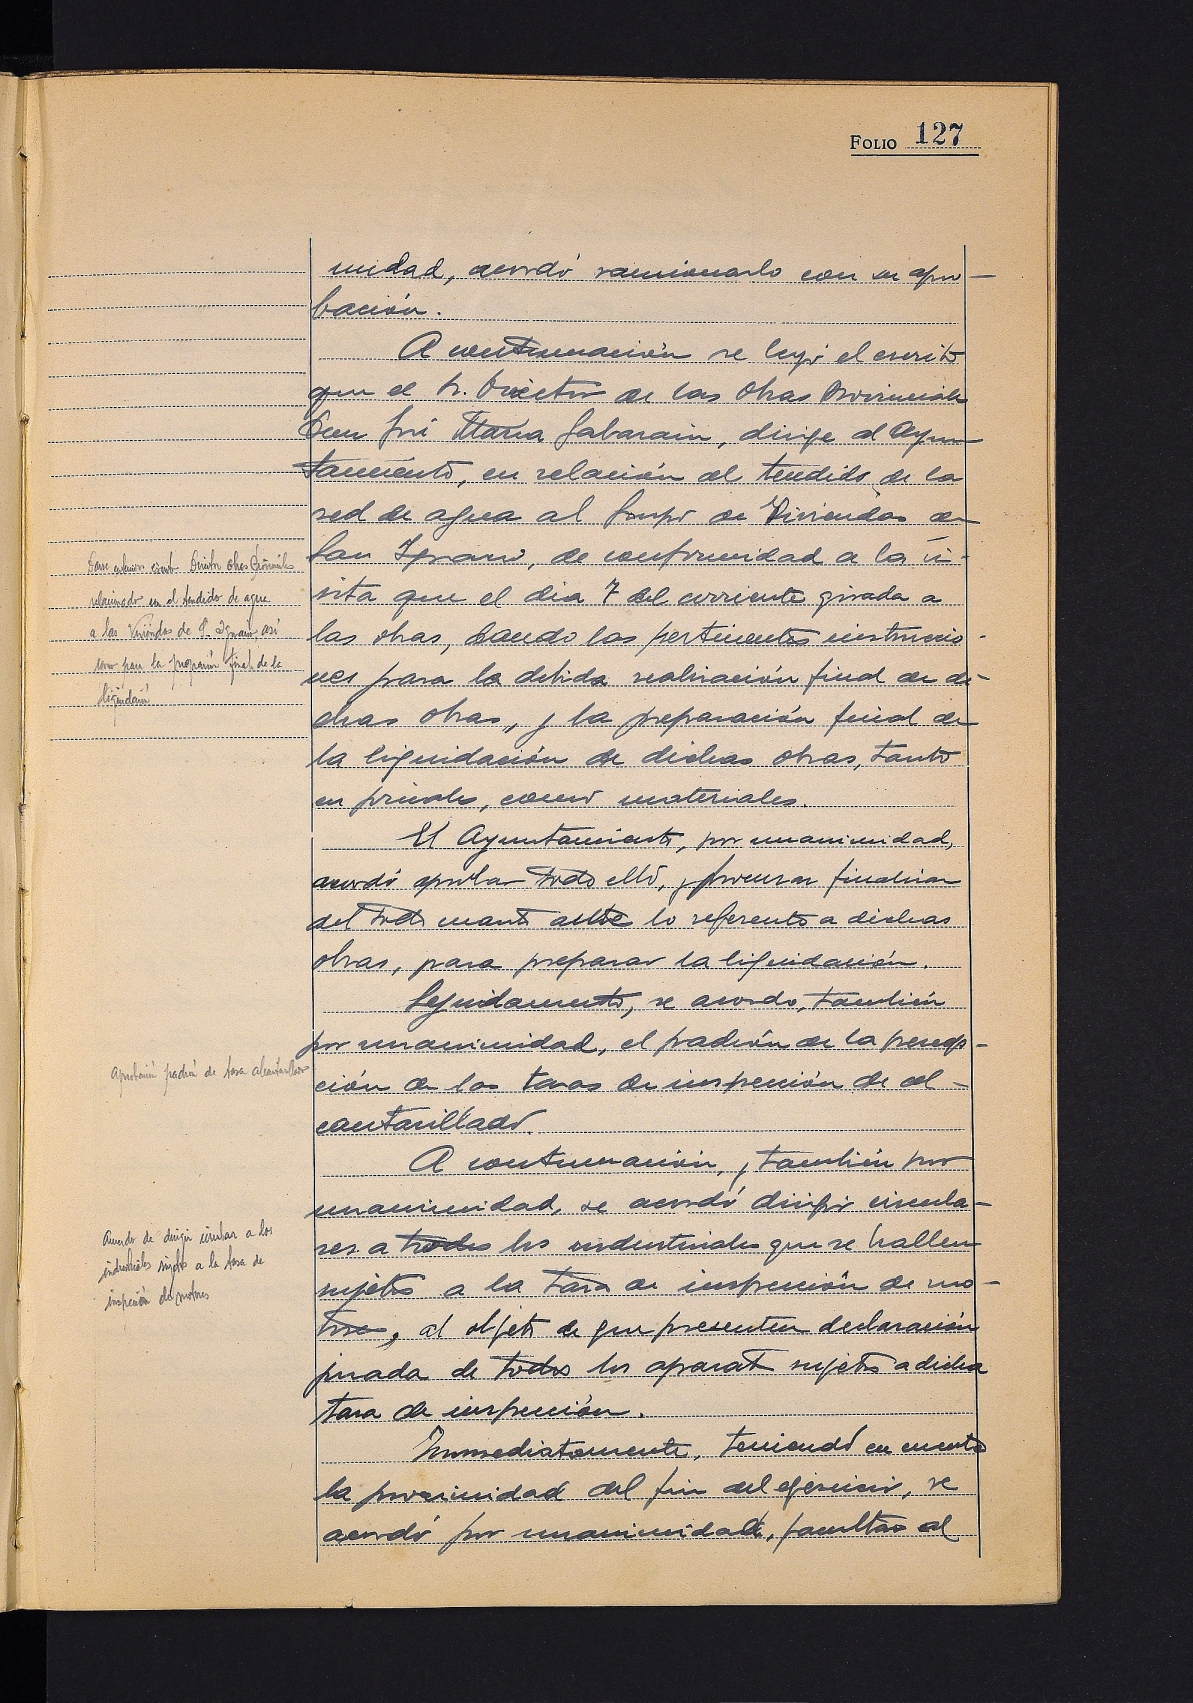 FOLIO 127
nidad, acordó sancionarlo con su apro-
bación.
A continuación se leyó el escrito
que el Sr. Director de las Obras Provinciales
Don José María Gabarain, dirige al Ayun-
tamiento, en relación al tendido de la
red de agua al Grupo de Viviendas de
San Ignacio, de conformidad a la vi-
sita que el dia 7 del corriente girada a
las obras, dando las pertinentes instruccio-
nes para la debida realización final de di-
chas obras, y la preparación final de
la liquidación de dichas obras, tanto
en jornales, como materiales.
El Ayuntamiento, por unanimidad,
acordó aprobar todo ello, y procurar finalizar
del todo cuanto antes lo referente a dichas
obras, para preparar la liquidación.
Seguidamente, se acordo, también
por unanimidad, el padrón de la percep-
ción de las tasas de inspección de al-
cantarillado.
A continuación, y también por
unanimidad, se acordó dirigir circula-
res a todos los industriales que se hallen
sujetos a la tasa de inspección de mo-
tores, al objeto de que presenten declaración
jurada de todos los aparatos sujetos a dicha
tasa de inspección.
Inmediatamente, teniendo en cuenta
la proximidad del fin del ejercicio, se
acordó por unanimidad, facultar al
escrito Director obras Provinciales
relacionado en el tendido de agua
a las Viviendas de S. Ignacio, así
como para la preparación final de la
liquidación
Aprobación padrón de tasa alcantarillado
Acuerdo de dirigir circular a los
industriales sujetos a la tasa de
inspección de motores